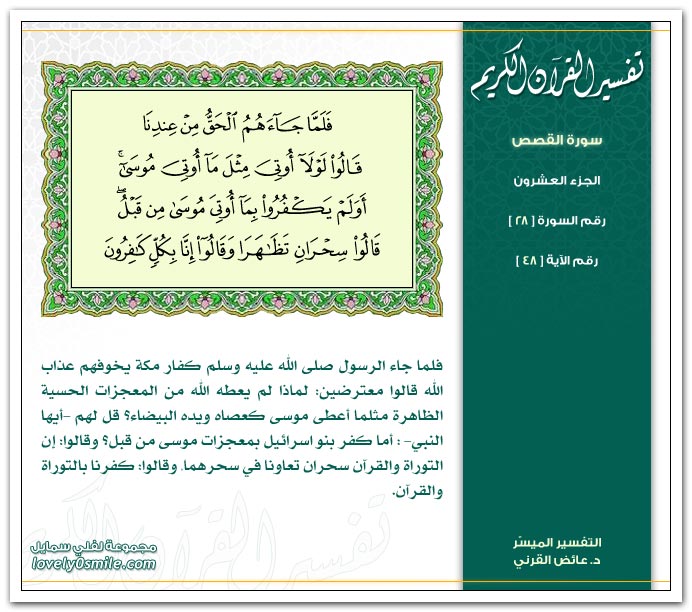 تفسير القرآن الكريم
سورة القصص
الجزء العشرون
رقم السورة [ ٢٨ ]
رقم الآية [ ٤٨ ]
فَلَمَّا جَآءَهُمُ ٱلْحَقُّ مِنْ عِندِنَا
قَالُوا۟ لَوْلَآ أُوتِىَ مِثْلَ مَآ أُوتِىَ مُوسَىٰٓ ۚ
أَوَلَمْ يَكْفُرُوا۟ بِمَآ أُوتِىَ مُوسَىٰ مِن قَبْلُ ۖ
قَالُوا۟ سِحْرَانِ تَظَٰهَرَا وَقَالُوٓا۟ إِنَّا بِكُلٍّ كَٰفِرُونَ
فلما جاء الرسول صلى الله عليه وسلم كفار مكة يخوفهم عذاب
الله قالوا معترضين: لماذا لم يعطه الله من المعجزات الحسية
الظاهرة مثلما أعطى موسى كعصاه ويده البيضاء؟ قل لهم -أيها
النبي- : أما كفر بنو اسرائيل بمعجزات موسى من قبل؟ وقالوا: إن
التوراة والقرآن سحران تعاونا في سحرهما، وقالوا: كفرنا بالتوراة
والقرآن.
التفسير الميسّر
د. عائض القرني
مجموعة لفلي سمايل
lovely0smile.com